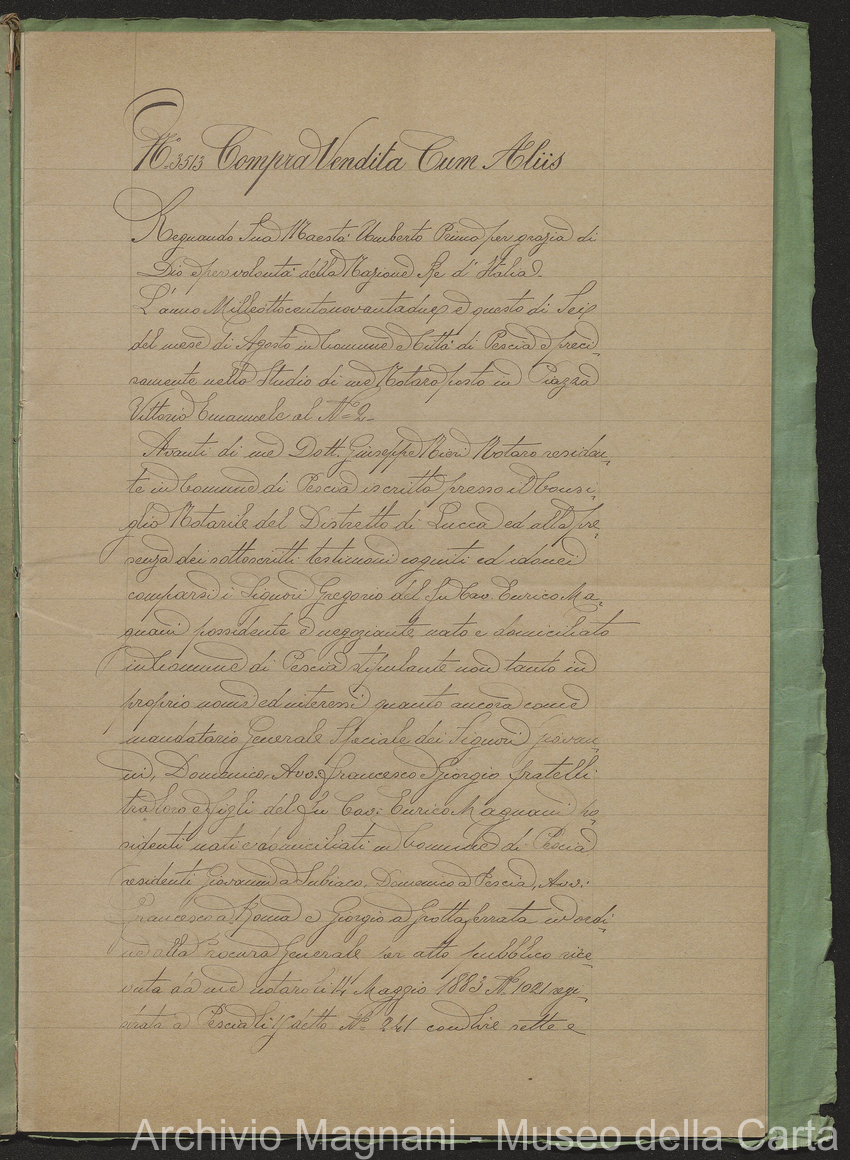 N.° 3513 Compra Vendita Cum Aliis
Regnando Sua Maestà Umberto Primo per grazia di
Dio e per volontà della Nazione Re d'Italia.
L'anno Milleottocentonovantadue e questo dì Sei
del mese di Agosto in Comune e Città di Pescia e preci=
samente nello Studio di me Notaro posto in Piazza
Vittorio Emanuele al N° 2.
Avanti di me Dott. Giuseppe Notaro residen=
te in Comune di Pescia iscritto presso il Consi=
glio Notarile del Distretto di Lucca ed alla pre=
senza dei sottoscritti testimoni cogniti ed idonei
comparsi i Signori Gregorio del fu Cav. Enrico Ma=
gnani possidente e negoziante nato e domiciliato
in Comune di Pescia stipulante non tanto in
proprio nome ed interessi quanto ancora come
mandatario Generale Speciale dei Signori Giovan=
ni, Domenico, Avv. Francesco e Giorgio fratelli
tra loro e figli del fu Cav. Enrico Magnani pos=
sidenti nati e domiciliati in Comune di Pescia
residenti Giovanni a Subiaco, Domenico a Pescia, Avv:
Francesco a Roma e Giorgio a Grottaferrata in ordi=
ne alla Procura Generale per atto pubblico rice=
vuta da me notaro li 14 Maggio 1883 N. 1021 regi=
strata a Pescia li detto N° 241 con Lire sette e
Archivio Magnani - Museo della Carta